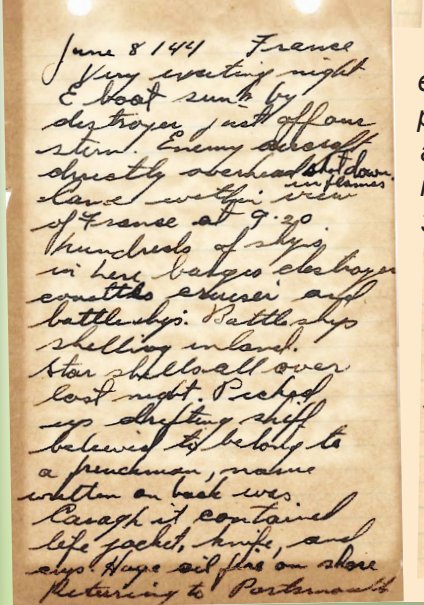 June 8/44 France
Very exciting night
E boat sunk by
destroyer just off our
stern. Enemy aircraft
directly overhead shot down
in flames.
Came within view
of France at 9.20.
hundreds of ships
in here barges destroyer
corvettes cruiser and
battleships. Battleships
shelling inland.
Star shells all over
last night. Picked
up drifting skiff
believed to belong to
a frenchman, name
written on back was
Caragh it contained
life jacket, knife, and
cups Huge oil fire on shore
Returning to Portsmouth